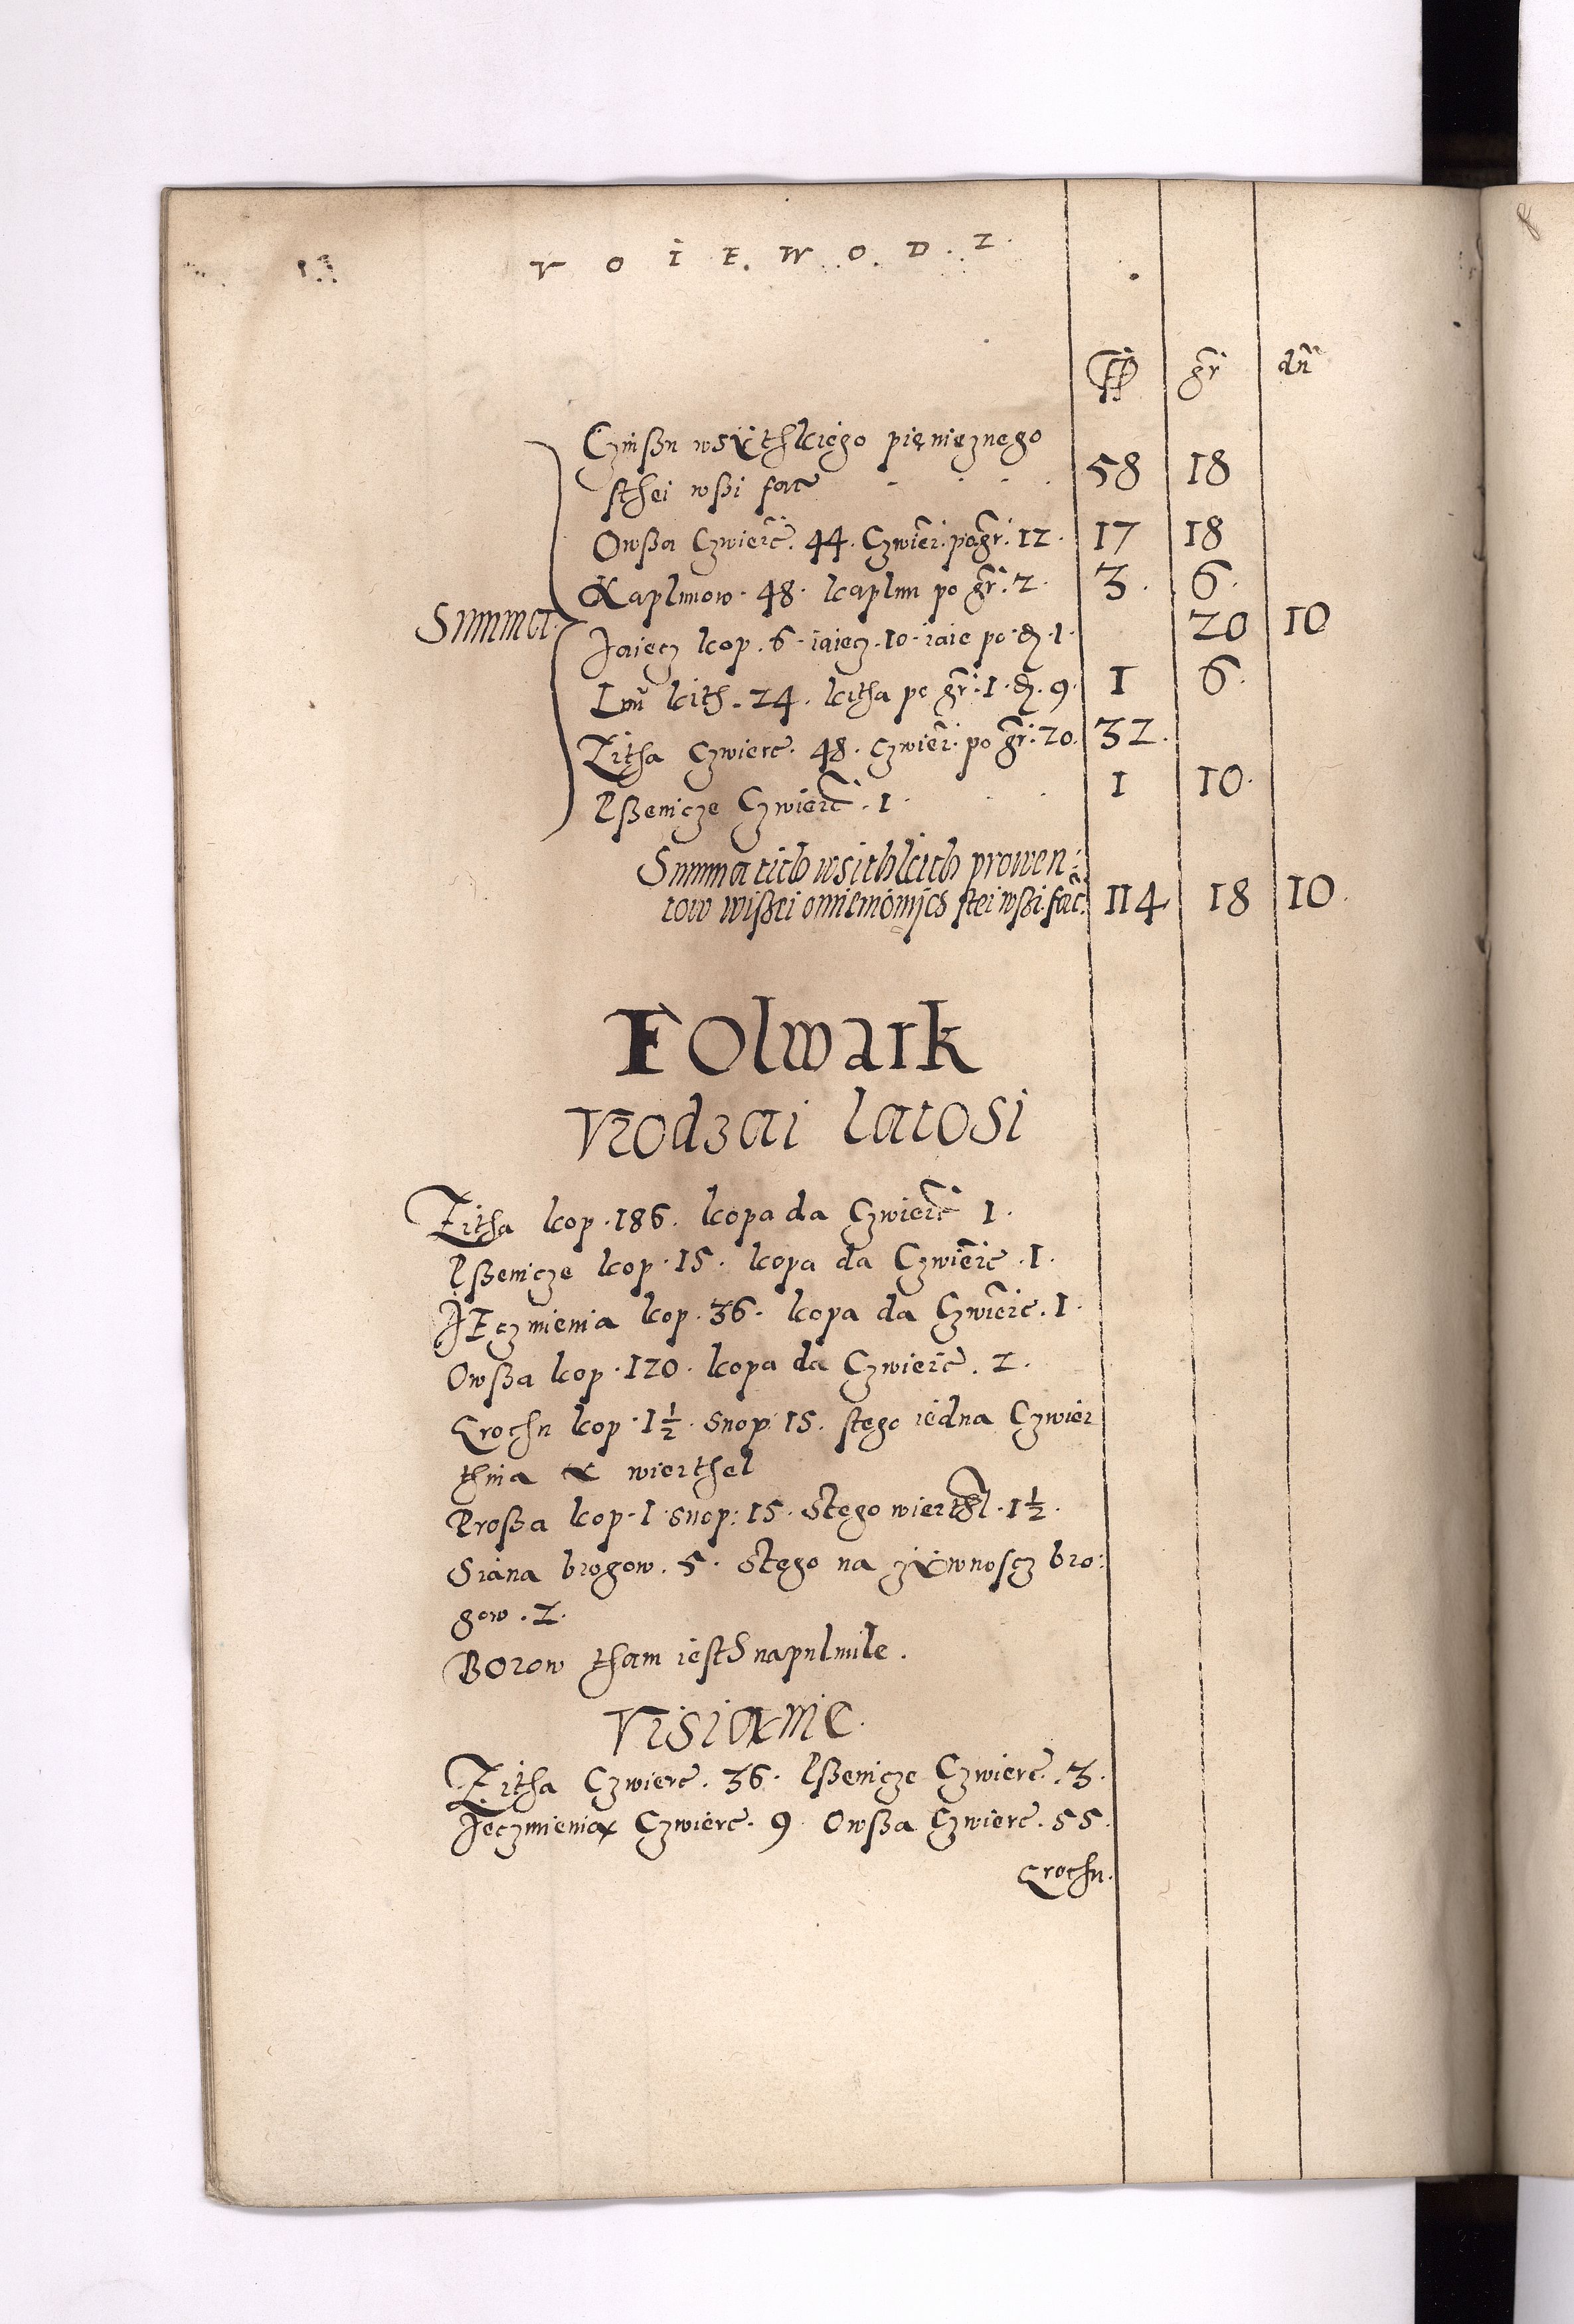 VOIEWOD.Z.
8
ff gr dn
Czinßu wsÿthkiego pienięznego
sthei wßi fac 58 18
Owßa Czwierc. 44. Czwier. po gr. 12. 17 18
Kaplunow. 48. kaplun po gr. 2. 3. 6.
Summa.
Jaiecz kop. 6. iaiecz. 10. iaie po đ. 1. 20 10
Lnu kith. 24. kitha po gr. 1. đ. 9. 1 6.
Zitha Czwierc. 48. czwier. po gr. 20. 32.
Pßenicze Czwierc. 1. 1 10.
Summa tich wsithkich prowen:
tow wißei omienionijch stei wßi. fac. 114 18 10.
Folwark
Vrodzai latosi
Zitha kop. 186. kopa da Czwierc 1.
Pßenicze kop. 15. kopa da Czwierc. 1.
JEczmienia kop. 36. kopa da Czwierc. 1.
Owßa kop. 120. kopa da Czwierc. 2.
Grochu kop. 1½. snop. 15. stego iedna Czwier
thnia wierthel
Proßa kop. 1 snop: 15. stego wierthl. 1½.
Siana brogow. 5. stego na zÿwnoscz bro:
gow. 2.
Borow tham iesth napulmile.
Vsianie.
Zitha Czwierc. 36. Pßenicze Czwierc. 3.
Jeczmienia Czwierc. 9. Owßa Czwierc. 55.
Grochu.